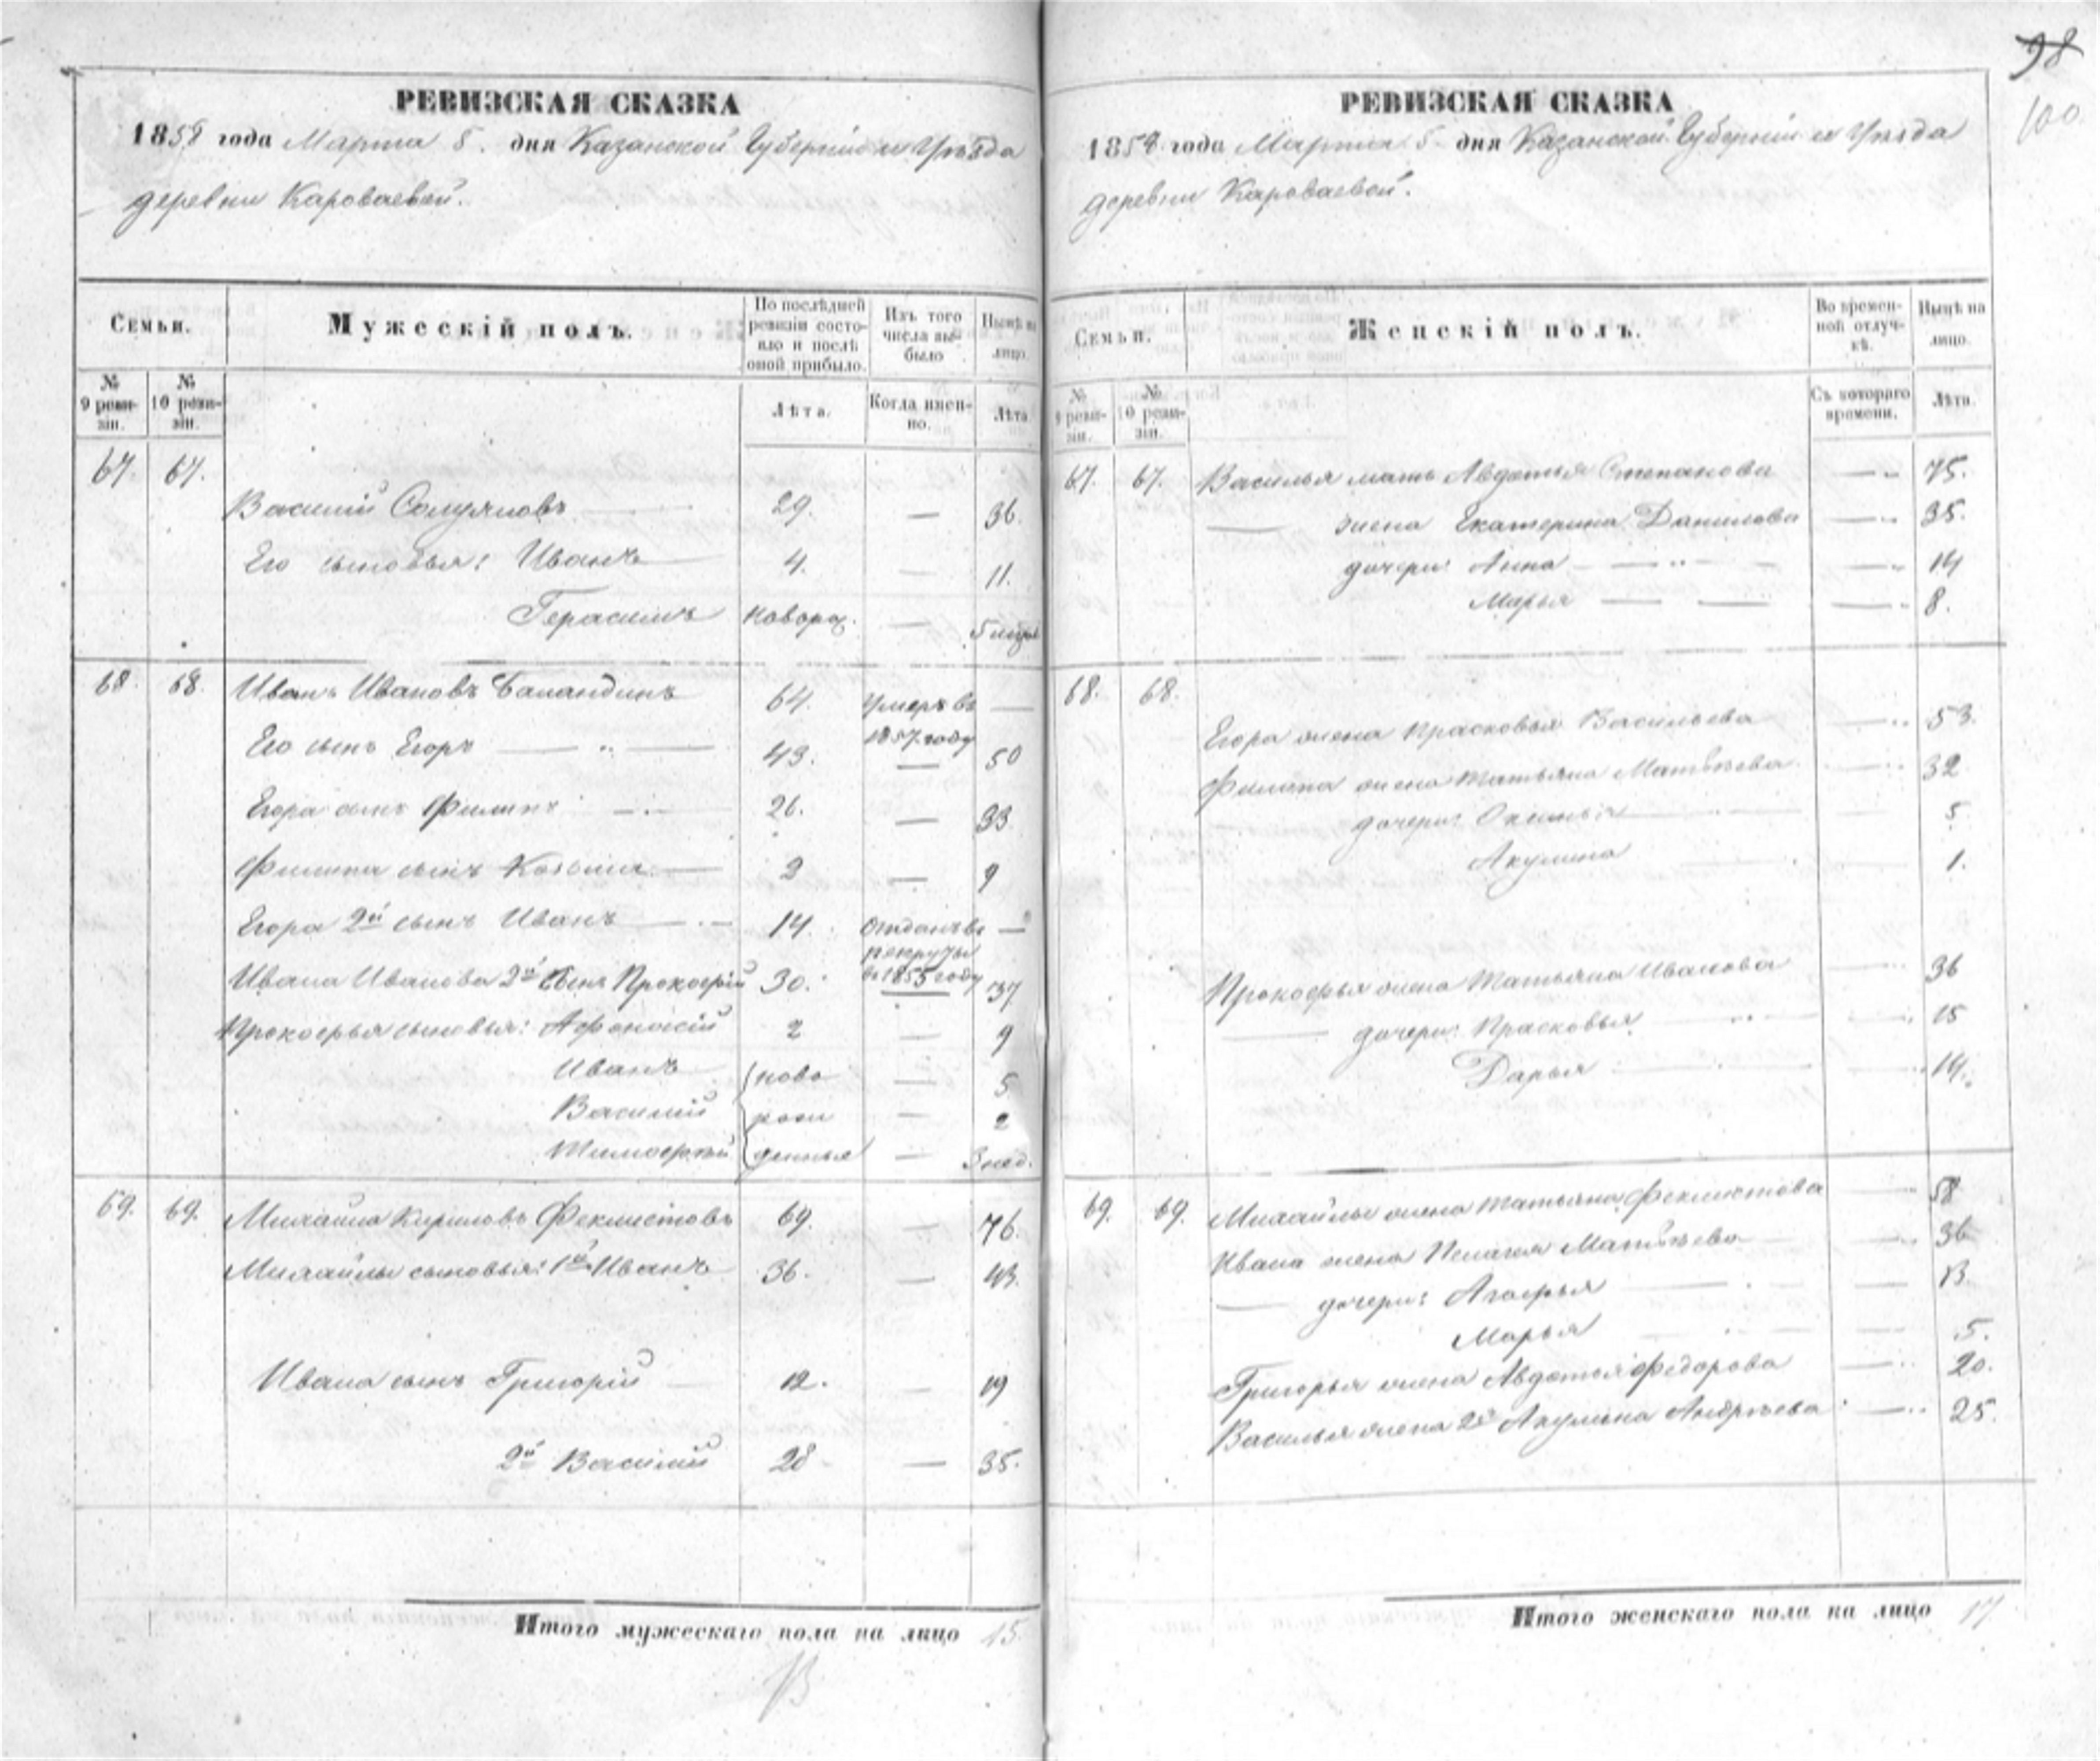 98
100
РЕВИЗСКАЯ СКАЗКА
1858 года Марта 5. дня Казанской Губерніи и Уѣзда
деревни Кароваевой.
Семьи. Мужескій полъ. По послѣдней ревизіи состояло и послѣ оной прибыло. Изъ того числа выбыло Нынѣ на лицо.
№ 9 ревизіи. № 10 ревизіи. Лѣта. Когда именно. Лѣта
67. 67.
Василій 29. — 36.
Его сыновья: Иванъ 4. — 11.
Герасимъ новорож. — 5
68. 68. Иванъ Ивановъ Баландинъ 64. умеръ въ 1857. году —
Его сынъ Егоръ 43. — 50
Егора сынъ Филипъ 26. — 33
Филипа сынъ Козьма 2 — 9
Егора 2й сынъ Иванъ 14. отданъ въ рекруты въ 1855 году —
Ивана Иванова 2й сынъ Прокофій 30. — 37
Прокофья сыновья: Афонасій 2 — 9
Иванъ ново — 5
Василій рож — 2
Тимофей денные — 3 нед.
69. 69. Михайла Кириловъ Феклистовъ 69. — 76.
Михайлы сыновья: 1й Иванъ 36. — 43.
Ивана сынъ Григорій 12. — 19
2й Василій 28 — 35.
Итого мужескаго пола на лицо 15.
РЕВИЗСКАЯ СКАЗКА
1858 года Марта 5 дня Казанской Губерніи и Уѣзда
деревни Кароваевой.
Семьи. Женскій полъ. Во временной отлучкѣ. Нынѣ на лицо.
№ 9 ревизіи. № 10 ревизіи. Съ котораго времени. Лѣта.
67. 67. Василья мать Авдотья Степанова — 75.
— жена Екатерина Данилова — 35.
дочери: Анна — 14
Марья — 8.
68. 68.
Егора жена Прасковья Васильева — 53.
Филипа жена Татьяна Матвѣева — 32
дочери: Аксинья — 5
Акулина — 1.
Прокофья жена Татьяна Иванова — 36
— дочери: Прасковья — 15
Дарья — 14.
69. 69. Михайлы жена Татьяна Феклистова — 58
Ивана жена Пелагея Матвѣева — 36
— дочери: Агафья — 13
Марья — 5.
Григорья жена Авдотья Федорова — 20.
Василья жена 2я Акулина Андрѣева — 25.
Итого женскаго пола на лицо 17